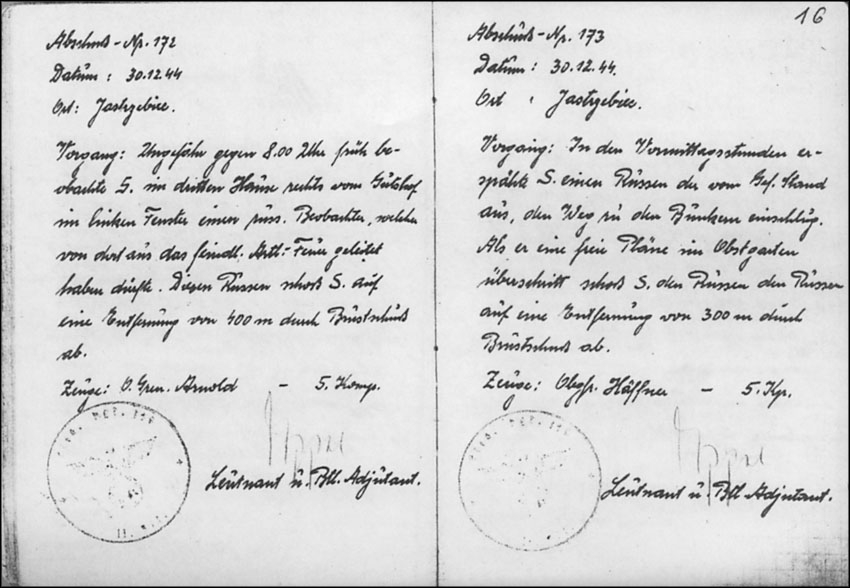 16
Abschuß-Nr. 172
Datum: 30.12.44
Ort: Jastrzebiec.
Vorgang: Ungefähr gegen 8.00 Uhr früh be-
obachte S. im dritten Hause rechts vom Gutshof
im linken Fenster einen russ. Beobachter, welcher
von dort aus das feindl. Artl.-Feuer geleitet
haben dürfte. Diesen Russen schoß S. auf
eine Entfernung von 400 m durch Brustschuß
ab.
Zeuge: O. Gren. Arnold – 5. Komp.
Leutnant u. Btl. Adjutant.
Abschuß-Nr. 173
Datum: 30.12.44.
Ort: Jastrzebiec.
Vorgang: In den Vormittagsstunden er-
spähte S. einen Russen der vom Gef. Stand
aus, den Weg zu den Bunkern einschlug.
Als er eine freie Pläne im Obstgarten
überschritt schoß S. den Russen den Russen
auf eine Entfernung von 300 m durch
Brustschuß ab.
Zeuge: Obgfr. Häffner – 5. Kp.
Leutnant u. Btl Adjutant.